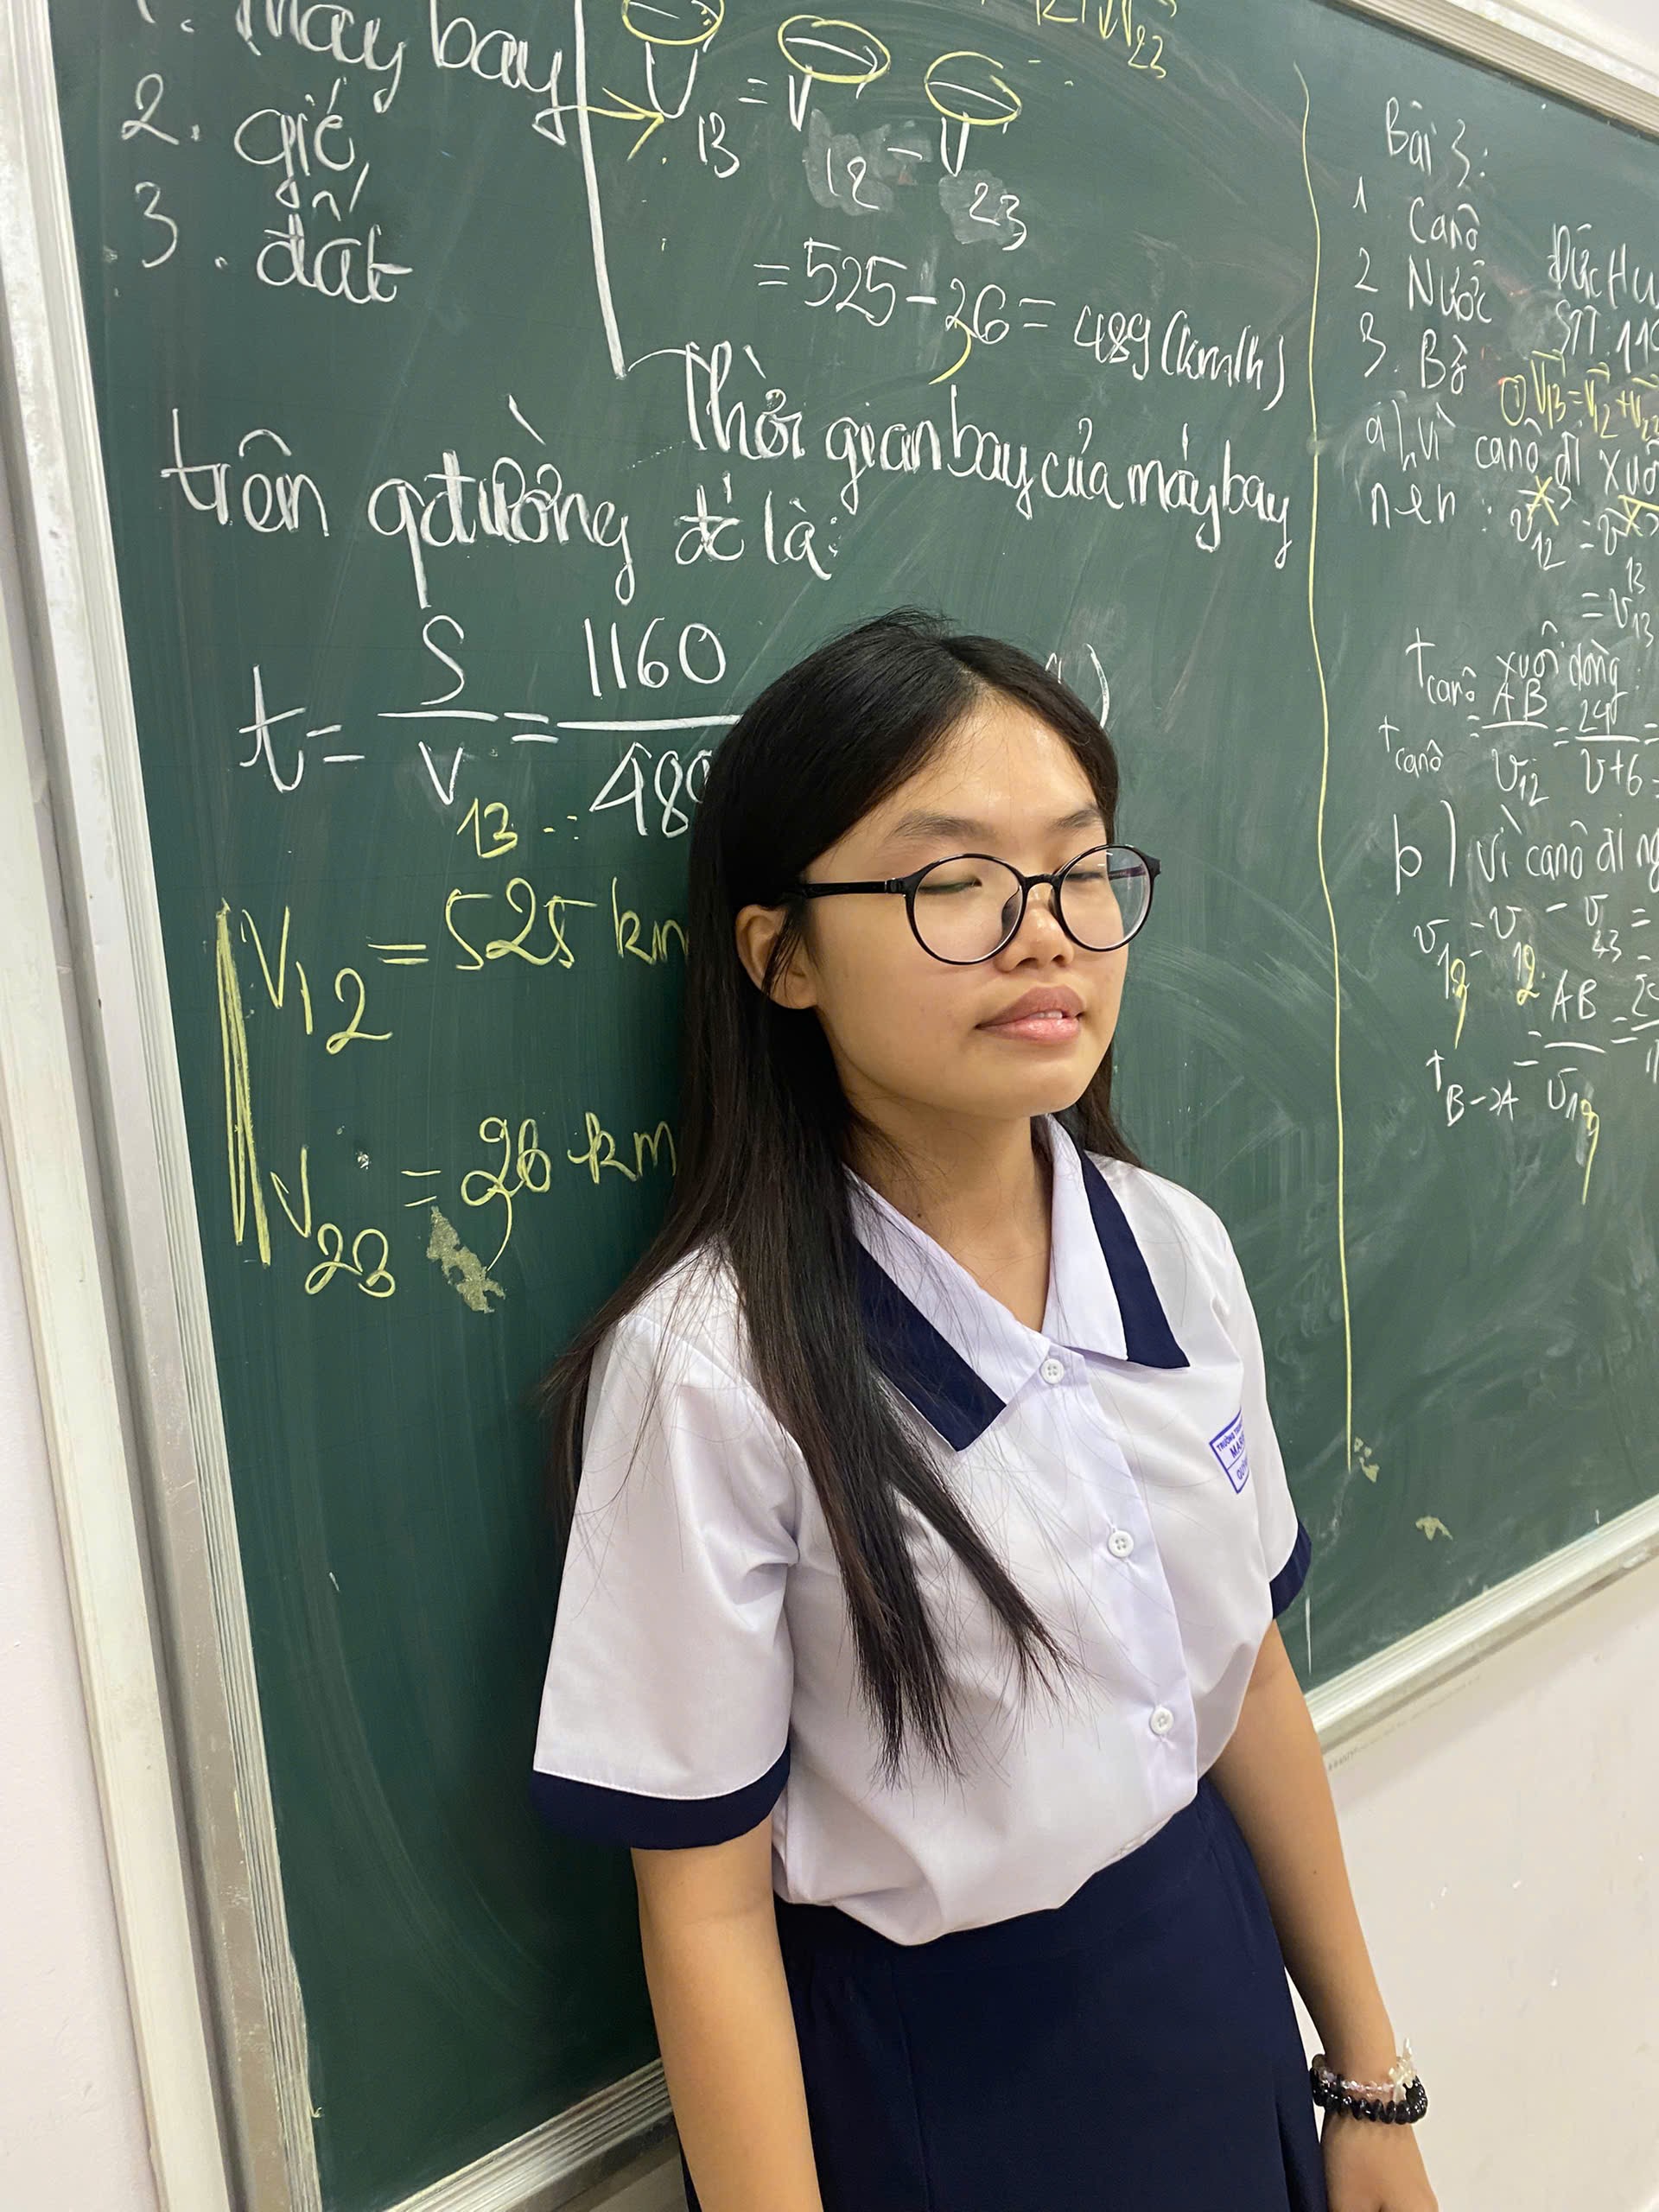 1. Máy bay
2. gió
3. đất
V13 = V12 - V23
= 525 - 36 = 489 (km/h)
Thời gian bay của máy bay
trên qđường đó là:
t = S / V13 = 1160 / 489
V12 = 525 km
V23 = 36 km
Bài 3:
1 Canô
2 Nước
3. Bờ
Đức Hu
STT: 11
① V13 = V12 + V23
a) Vì canô đi xuô
nên : V12 = V13
= V13
t canô xuôi dòng :
t canô = AB / V12 = 240 / V+6 =
b) Vì canô đi ng
V13 = V12 - V23 =
t B->A = AB / V13 =
TRƯỜNG
MAR
QU